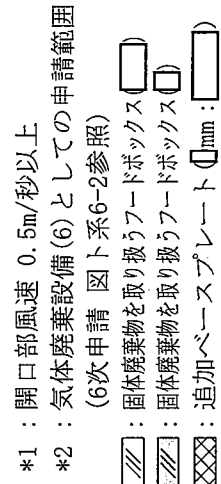 *1 : 開口部風速 0.5m/秒以上
*2 : 気体廃棄設備(6)としての申請範囲
(6次申請 図ト系6-2参照)
: 固体廃棄物を取り扱うフードボックス( )
: 固体廃棄物を取り扱うフードボックス( )
: 追加ベースプレート( mm : )